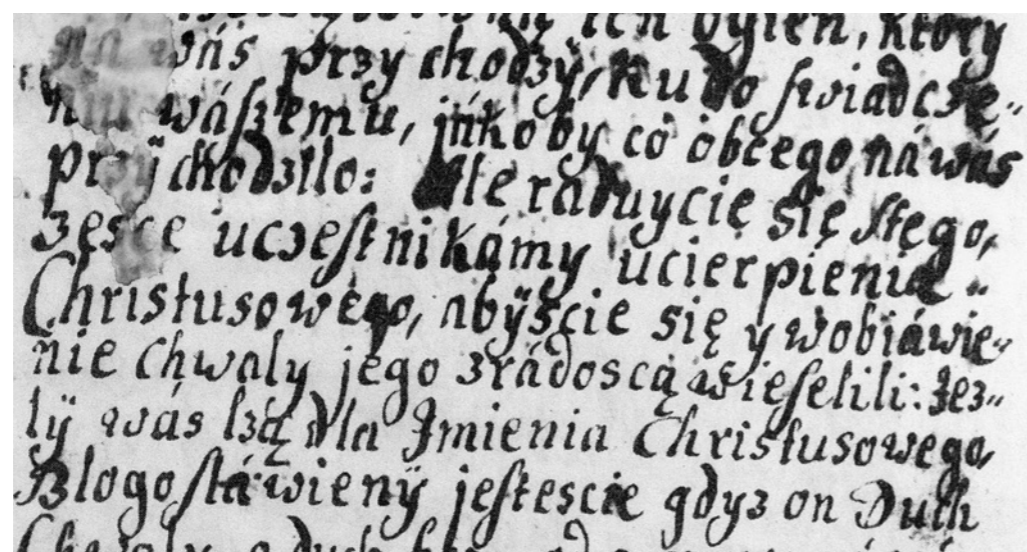 ich ogień, który
na wás przychodzÿ, Ku do swiadczę„
niu wászemu, jáko by co obcego náwás
przÿchodziło: Ale raduycie się stego,
żesce uczestnikámy ucierpienia„
Christusowego, abÿscie się y wobiáwie„
nie chwaly jego zrádoscą wieselili: Jez„
lÿ wás lzą dla Jmienia Christusowego,
Blogosláwienÿ jestescie gdyz on Duch
Chwaly, a duch